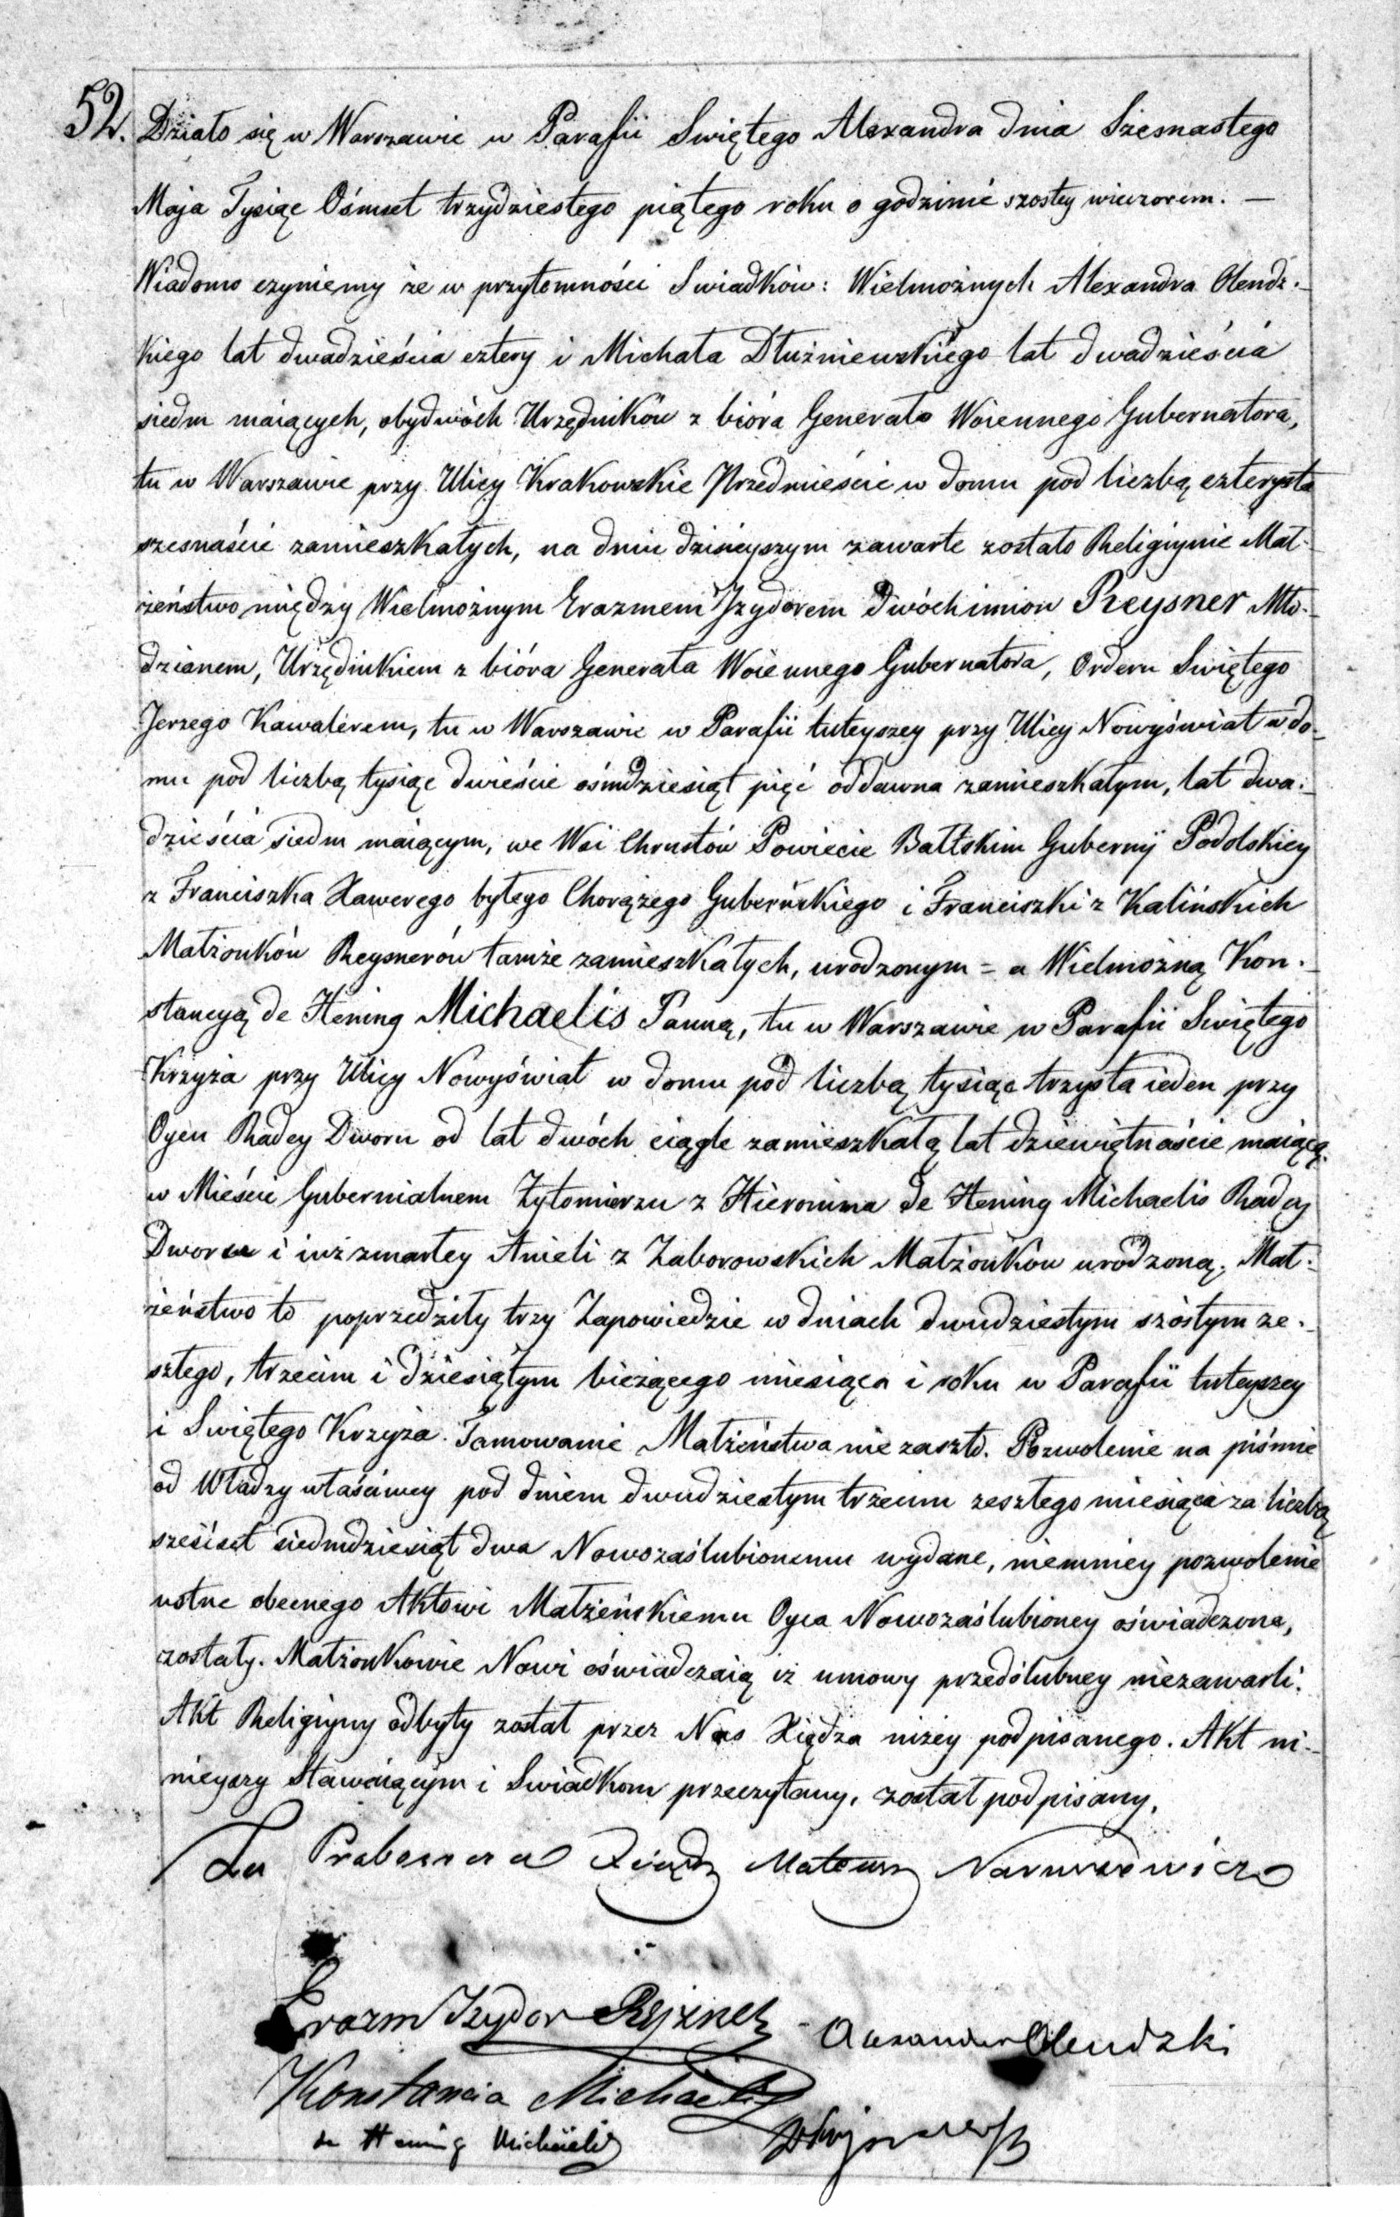 52. Działo się w Warszawie w Parafii Swiętego Alexandra dnia Szesnastego
Maja Tysiąc Ośmset trzydziestego piątego roku o godzinie szostey wieczorem. —
Wiadomo czyniemy że w przytomności Swiadków: Wielmożnych Alexandra Olendz-
kiego lat dwadzieścia cztery i Michała Dłużniewskiego lat dwadzieścia
siedm maiących, obydwóch Urzędników z bióra Generała Woiennego Gubernatora,
tu w Warszawie przy Ulicy Krakowskie Przedmieście w domu pod liczbą czterysta
szesnaście zamieszkałych, na dniu dzisieyszym zawarte zostało Religiynie Mał-
żeństwo między Wielmożnym Erazmem Izydorem dwóch imion Reysner Mło-
dzianem, Urzędnikiem z bióra Generała Woiennego Gubernatora, Orderu Swiętego
Jerzego Kawalerem, tu w Warszawie w Parafii tuteyszey przy Ulicy Nowyświat w do-
mu pod liczbą tysiąc dwieście ośmdziesiąt pięć oddawna zamieszkałym, lat dwa-
dzieścia siedm maiącym, we Wsi Chrustów Powiecie Baltskim Gubernij Podolskiey
z Franciszka Xawerego byłego Chorążego Guberńskiego i Franciszki z Kalińskich
Małżonków Reysnerów tamże zamieszkałych, urodzonym = a Wielmożną Kon-
stancyą de Hening Michaelis Panną, tu w Warszawie w Parafii Swiętego
Krzyża przy Ulicy Nowyświat w domu pod liczbą tysiąc trzysta ieden przy
Oycu Radcy Dworu od lat dwóch ciągle zamieszkałą lat dziewiętnaście maiącą,
w Mieście Gubernialnem Żytomierzu z Hieronima de Hening Michaelis Radcy
Dworu i iuż zmarłey Anieli z Zaborowskich Małżonków urodzoną. Mał-
żeństwo to poprzedziły trzy Zapowiedzie w dniach dwudziestym szóstym ze-
szłego, trzecim i dziesiątym bieżącego miesiąca i roku w Parafii tuteyszey
i Swiętego Krzyża. Tamowanie Małżeństwa nie zaszło. Pozwolenie na piśmie
od Władzy właściwey pod dniem dwudziestym trzecim zeszłego miesiąca za liczbą
sześćset siedmdziesiąt dwa Nowozaślubionemu wydane, niemniey pozwolenie
ustne obecnego Aktowi Małżeńskiemu Oyca Nowozaślubioney oświadczone,
zostały. Małżonkowie Nowi oświadczaią iż umowy przedślubney niezawarli.
Akt Religiyny odbyty został przez Nas Xiędza niżey podpisanego. Akt ni-
nieyszy Stawaiącym i Swiadkom przeczytany, został podpisany.
Za Proboszcza Xiądz Mateusz Naruszewicz
Erazm Izydor Rejzner Alexander Olendzki
Konstancia Michaelis
de Hening Michaelis